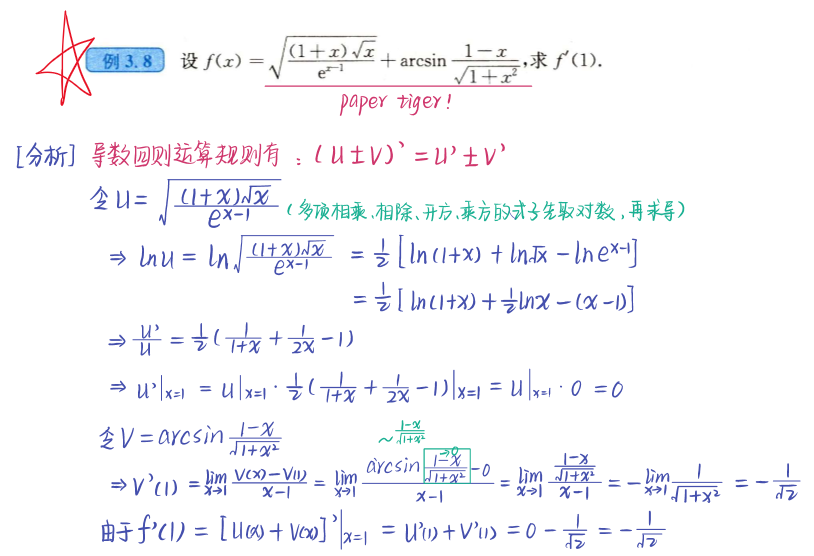 例 3.8 设 f(x) = √((1+x)√x / e^(x-1)) + arcsin (1-x)/√(1+x²), 求 f′(1).
paper tiger!
[分析] 导数四则运算规则有：(u±v)' = u'±v'
令 u = √((1+x)√x / e^(x-1)) (多项相乘、相除、开方、乘方的式子先取对数，再求导)
⇒ lnu = ln√((1+x)√x / e^(x-1)) = 1/2 [ln(1+x) + ln√x - lne^(x-1)]
= 1/2 [ln(1+x) + 1/2 lnx - (x-1)]
⇒ u'/u = 1/2 (1/(1+x) + 1/(2x) - 1)
⇒ u'|x=1 = u|x=1 · 1/2 (1/(1+x) + 1/(2x) - 1)|x=1 = u|x=1 · 0 = 0
令 v = arcsin (1-x)/√(1+x²)
~ (1-x)/√(1+x²)
→0
⇒ v'(1) = lim x→1 (v(x)-v(1))/(x-1) = lim x→1 (arcsin (1-x)/√(1+x²) - 0)/(x-1) = lim x→1 ((1-x)/√(1+x²))/(x-1) = - lim x→1 1/√(1+x²) = - 1/√2
由于 f'(1) = [u(x) + v(x)]'|x=1 = u'(1) + v'(1) = 0 - 1/√2 = - 1/√2